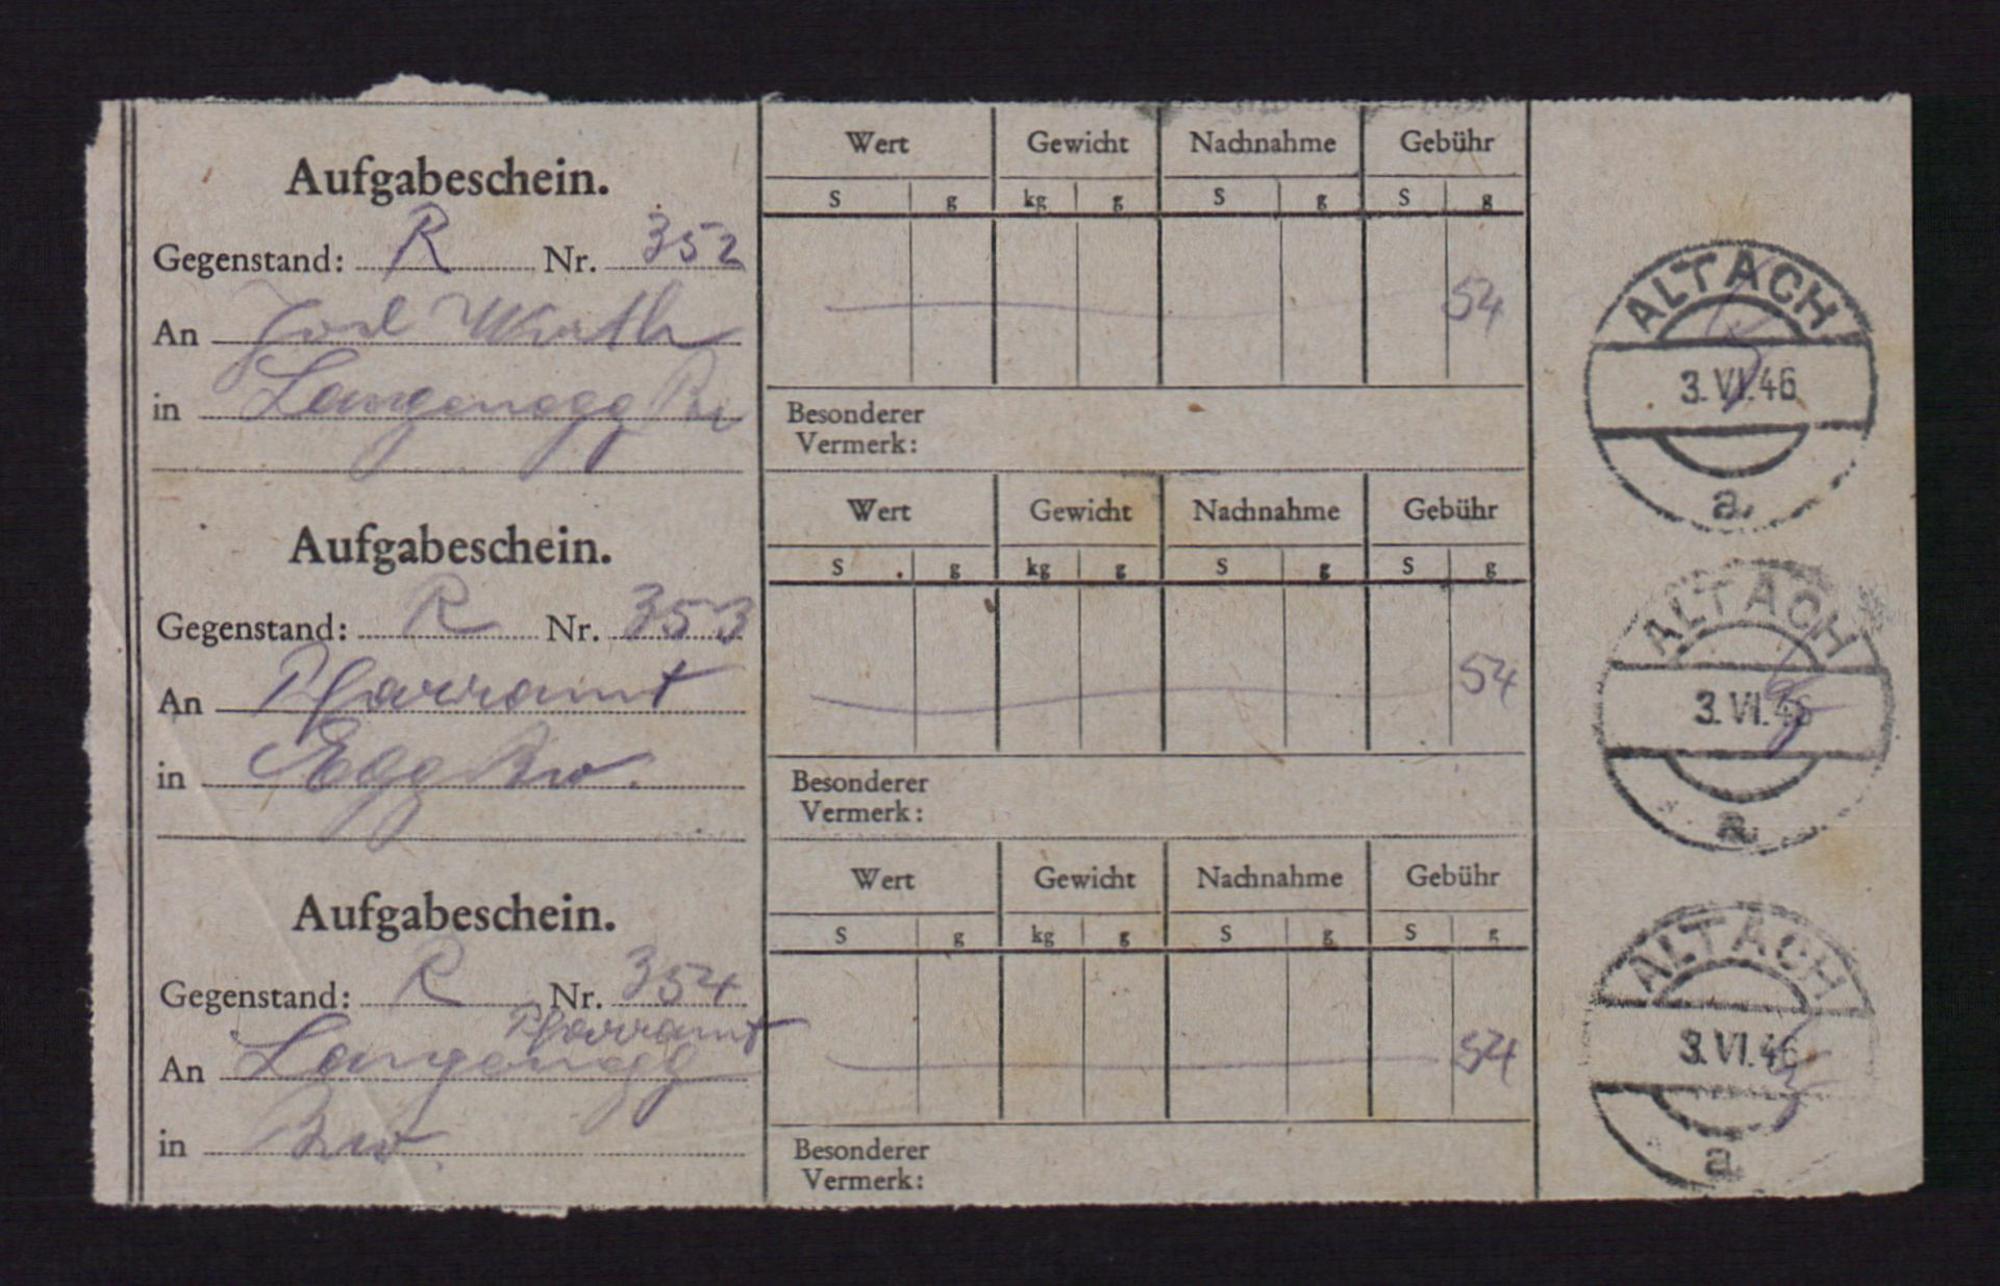 Aufgabeschein.
Gegenstand: R Nr. 352
An Josl Wirth
in Langenegg Bw
Wert Gewicht Nachnahme Gebühr
S g kg g S g S g
54
Besonderer
Vermerk:
ALTACH
3.VI.46
a
Aufgabeschein.
Gegenstand: R Nr. 353
An Pfarramt
in Egg Bw.
Wert Gewicht Nachnahme Gebühr
S g kg g S g S g
54
Besonderer
Vermerk:
ALTACH
3.VI.46
a
Aufgabeschein.
Gegenstand: R Nr. 354
Pfarramt
An Langenegg
in Bw.
Wert Gewicht Nachnahme Gebühr
S g kg g S g S g
54
Besonderer
Vermerk:
ALTACH
3.VI.46
a